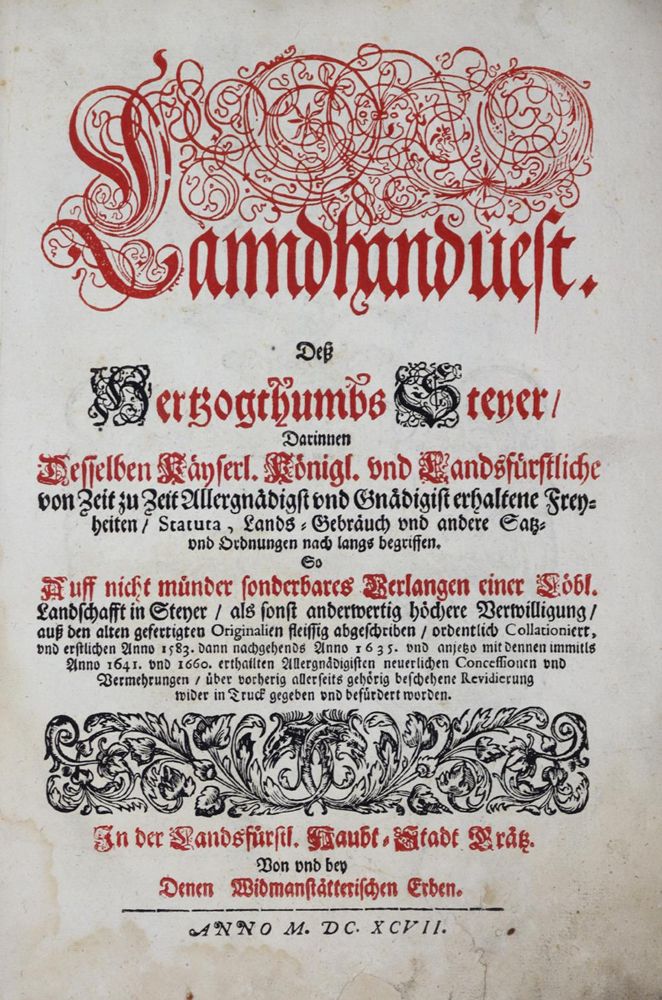 Lanndhandüest.
Deß
Hertzogthumbs Steyer/
Darinnen
Desselben Käyserl. Königl. vnd Landsfürstliche
von Zeit zu Zeit Allergnädigst vnd Gnädigist erhaltene Frey-
heiten/ Statuta, Lands-Gebräuch vnd andere Satz-
vnd Ordnungen nach langs begriffen.
So
Auff nicht münder sonderbares Verlangen einer Löbl.
Landschafft in Steyer/ als sonst anderwertig höchere Verwilligung/
auß den alten gefertigten Originalien fleissig abgeschriben/ ordentlich Collationiert,
vnd erstlichen Anno 1583. dann nachgehends Anno 1635. vnd anjetzo mit dennen immitls
Anno 1641. vnd 1660. erthailten Allergnädigisten neuerlichen Concessionen vnd
Vermehrungen/ über vorherig allerseits gehörig beschehene Revidierung
wider in Truck gegeben vnd befürdert worden.
In der Landsfürstl. Haubt-Stadt Grätz.
Von vnd bey
Denen Widmanstätterischen Erben.
ANNO M. DC. XCVII.